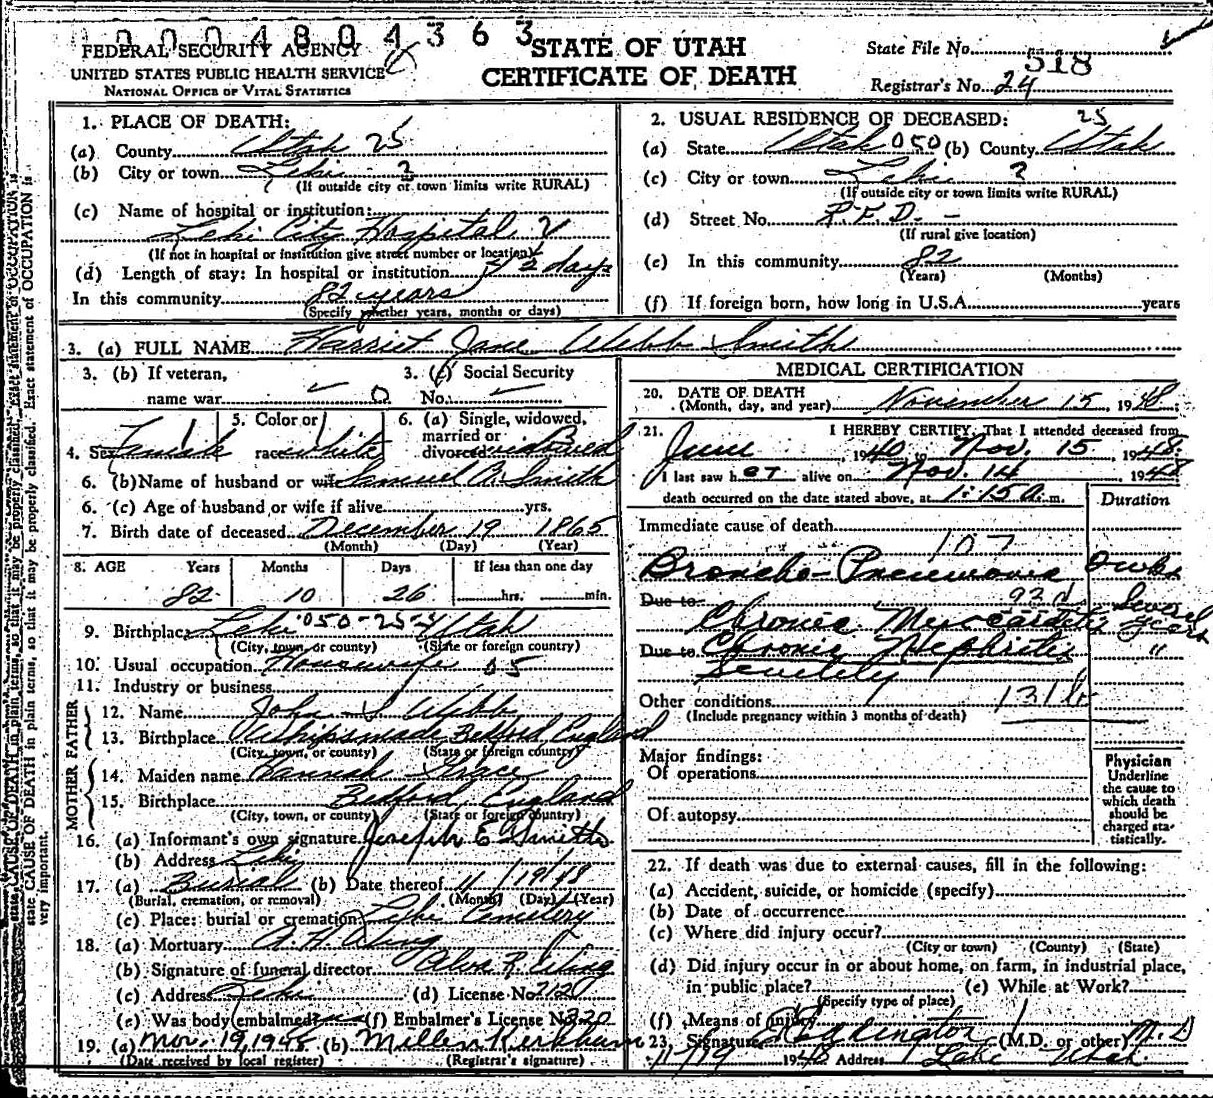 00004804363
FEDERAL SECURITY AGENCY
UNITED STATES PUBLIC HEALTH SERVICE
NATIONAL OFFICE OF VITAL STATISTICS
STATE OF UTAH
CERTIFICATE OF DEATH
State File No. 518
Registrar's No. 24
1. PLACE OF DEATH:
(a) County Utah 25
(b) City or town Lehi
(If outside city or town limits write RURAL)
(c) Name of hospital or institution:
Lehi City Hospital
(If not in hospital or institution give street number or location)
(d) Length of stay: In hospital or institution days
In this community 82 years
(Specify whether years, months or days)
2. USUAL RESIDENCE OF DECEASED: 25
(a) State Utah 050 (b) County Utah
(c) City or town Lehi
(If outside city or town limits write RURAL)
(d) Street No. R.F.D.
(If rural give location)
(e) In this community 82
(Years) (Months)
(f) If foreign born, how long in U.S.A. years
3. (a) FULL NAME Harriet Jane Webb Smith
3. (b) If veteran,
name war O
3. (c) Social Security
No.
4. Sex Female
5. Color or
race white
6. (a) Single, widowed,
married or
divorced widowed
6. (b) Name of husband or wife Samuel R. Smith
6. (c) Age of husband or wife if alive yrs.
7. Birth date of deceased December 19 1865
(Month) (Day) (Year)
8. AGE Years Months Days If less than one day
82 10 26 hrs. min.
9. Birthplace Lehi 050-25-3 Utah
(City, town, or county) (State or foreign country)
10. Usual occupation Housewife 05
11. Industry or business
FATHER
12. Name John S Webb
13. Birthplace Bedford England
(City, town, or county) (State or foreign country)
MOTHER
14. Maiden name Hannah Grace
15. Birthplace Bedford, England
(City, town, or county) (State or foreign country)
16. (a) Informant's own signature Joseph E Smith
(b) Address Lehi
17. (a) Burial (b) Date thereof 11/19/48
(Burial, cremation, or removal) (Month) (Day) (Year)
(c) Place: burial or cremation Lehi Cemetery
18. (a) Mortuary A. H. Wing
(b) Signature of funeral director Alva R. Wing
(c) Address Lehi (d) License No. 212
(e) Was body embalmed? yes (f) Embalmer's License No. 320
19. (a) Nov. 19, 1948 (b) Kirkham
(Date received by local register) (Registrar's signature)
MEDICAL CERTIFICATION
20. DATE OF DEATH
(Month, day, and year) November 15, 1948
21. I HEREBY CERTIFY, That I attended deceased from
June, 1940 to Nov. 15, 1948.
I last saw her alive on Nov. 14, 1948
death occurred on the date stated above, at 1:15 a. m.
Duration
Immediate cause of death
107
Broncho-Pneumonia wks
Due to 93d
Chronic Myocarditis Several years
Due to Chronic Nephritis "
Senility
Other conditions 131b
(Include pregnancy within 3 months of death)
Major findings:
Of operations
Of autopsy
Physician
Underline
the cause to
which death
should be
charged sta-
tistically.
22. If death was due to external causes, fill in the following:
(a) Accident, suicide, or homicide (specify)
(b) Date of occurrence
(c) Where did injury occur?
(City or town) (County) (State)
(d) Did injury occur in or about home, on farm, in industrial place,
in public place? (e) While at Work?
(Specify type of place)
(f) Means of injury
23. Signature Eddington (M.D. or other) M.D
11/19 1948 Address Lehi Utah
state CAUSE OF DEATH in plain terms, so that it may be properly classified. Exact statement of OCCUPATION is
very important.